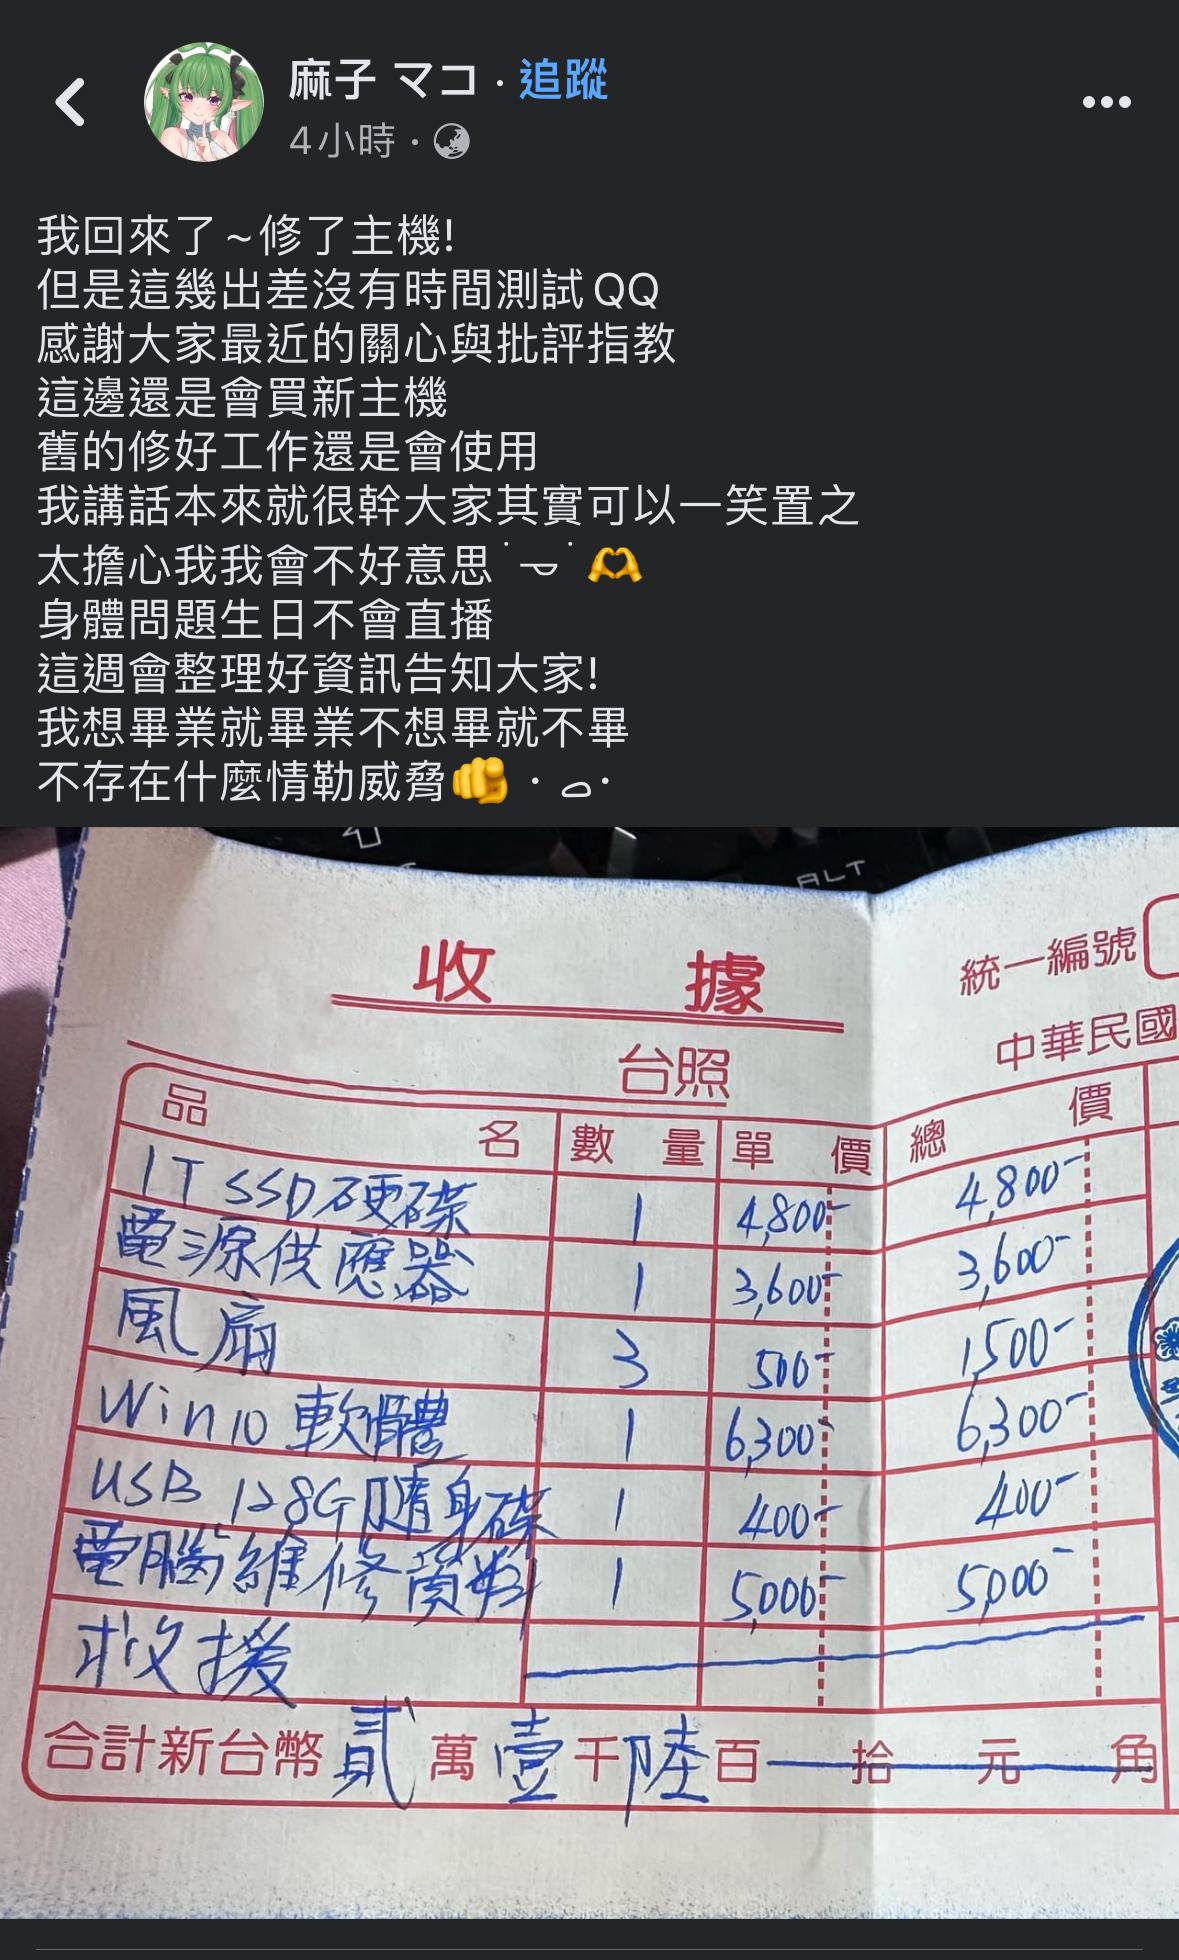 麻子 マコ · 追蹤
4小時 ·
我回來了~修了主機!
但是這幾出差沒有時間測試QQ
感謝大家最近的關心與批評指教
這邊還是會買新主機
舊的修好工作還是會使用
我講話本來就很幹大家其實可以一笑置之
太擔心我我會不好意思 🫶
身體問題生日不會直播
這週會整理好資訊告知大家!
我想畢業就畢業不想畢就不畢
不存在什麼情勒威脅🫵
ALT
收據
統一編號
中華民國
台照
品名 數量 單價 總價
1T SSD硬碟 1 4,800- 4,800-
電源供應器 1 3,600- 3,600-
風扇 3 500- 1,500-
Win10 軟體 1 6,300- 6,300-
USB 128G隨身碟 1 400- 400-
電腦維修資料 1 5,000- 5,000-
救援
合計新台幣貳萬壹千陸百拾元角